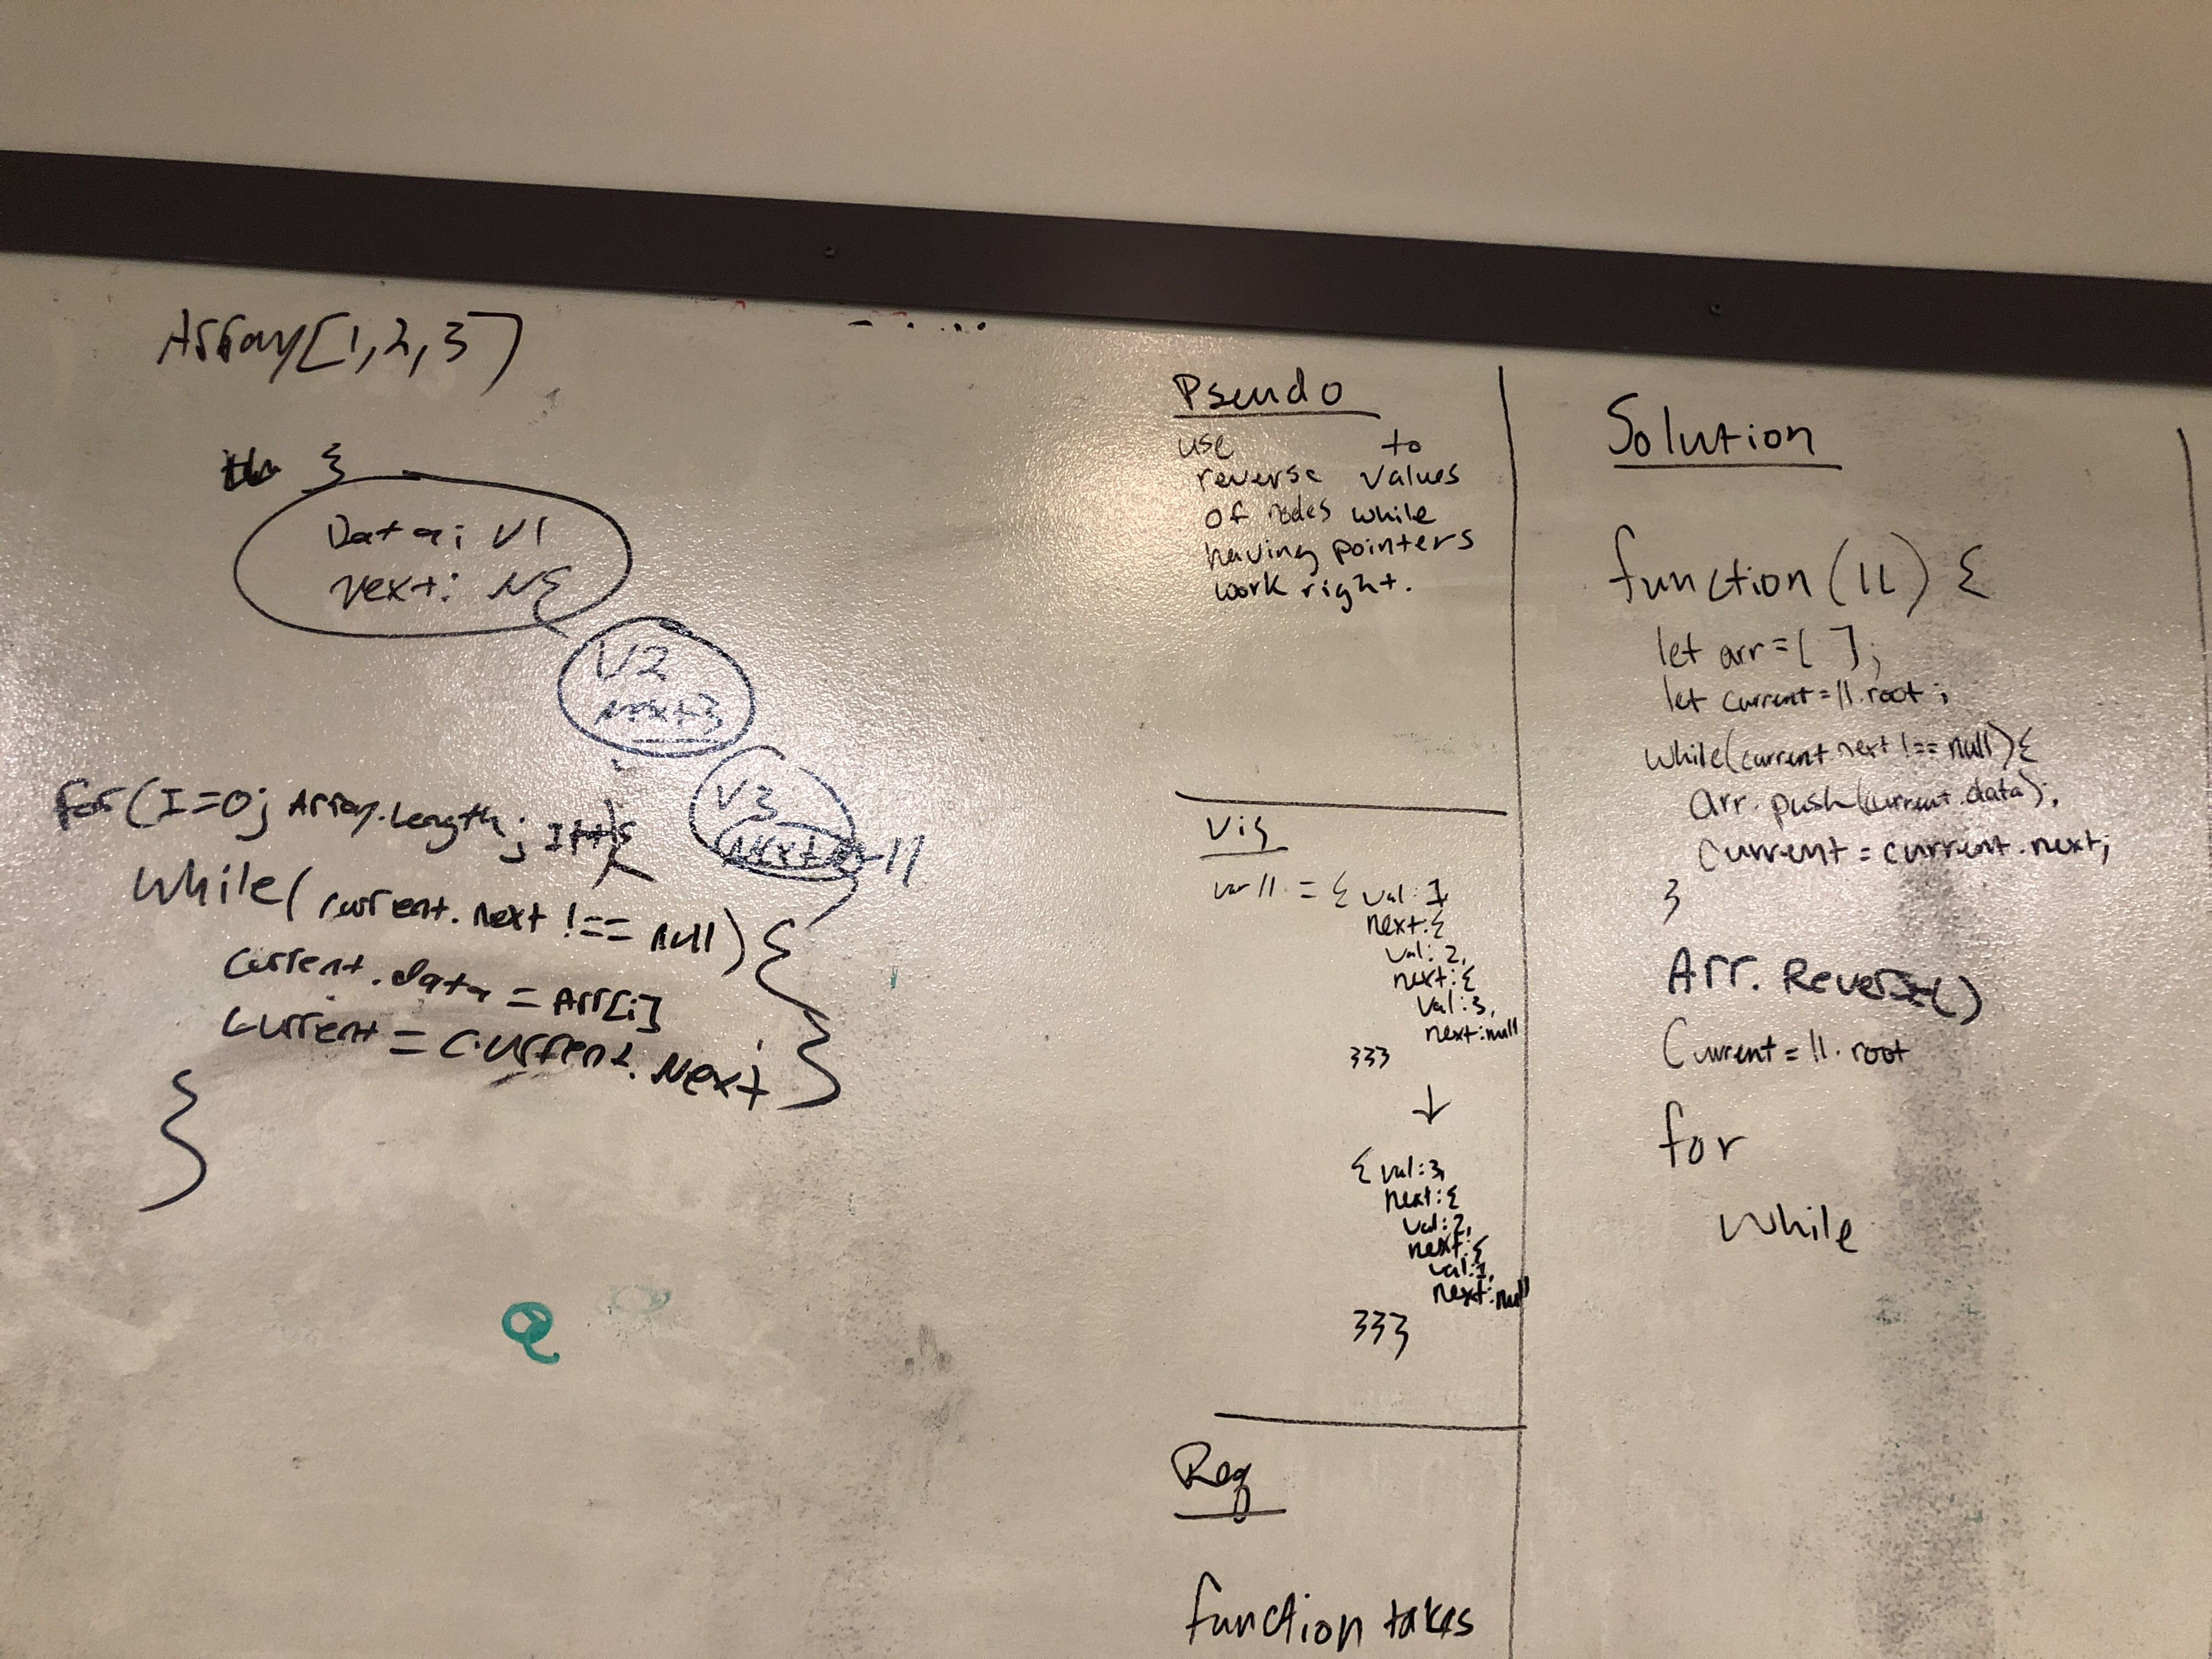 Array[1,2,3]
}
Data: V1
next: N{
V2
next 3
V3
for(I=0; Array.length; I++){
while(current.next !== null){
current.data = Arr[i]
current = current.Next
}
}
Q
Pseudo
use to
reverse values
of nodes while
having pointers
work right.
Vis
var ll = { val: 1,
next: {
val: 2,
next: {
val: 3,
next: null
}}}
↓
{ val: 3,
next: {
val: 2,
next: {
val: 1,
next: null
}}}
Req
function takes
Solution
function(ll) {
let arr = [ ];
let current = ll.root;
while(current.next !== null){
arr.push(current.data);
current = current.next;
}
Arr. Reverse()
Current = ll.root
for
while